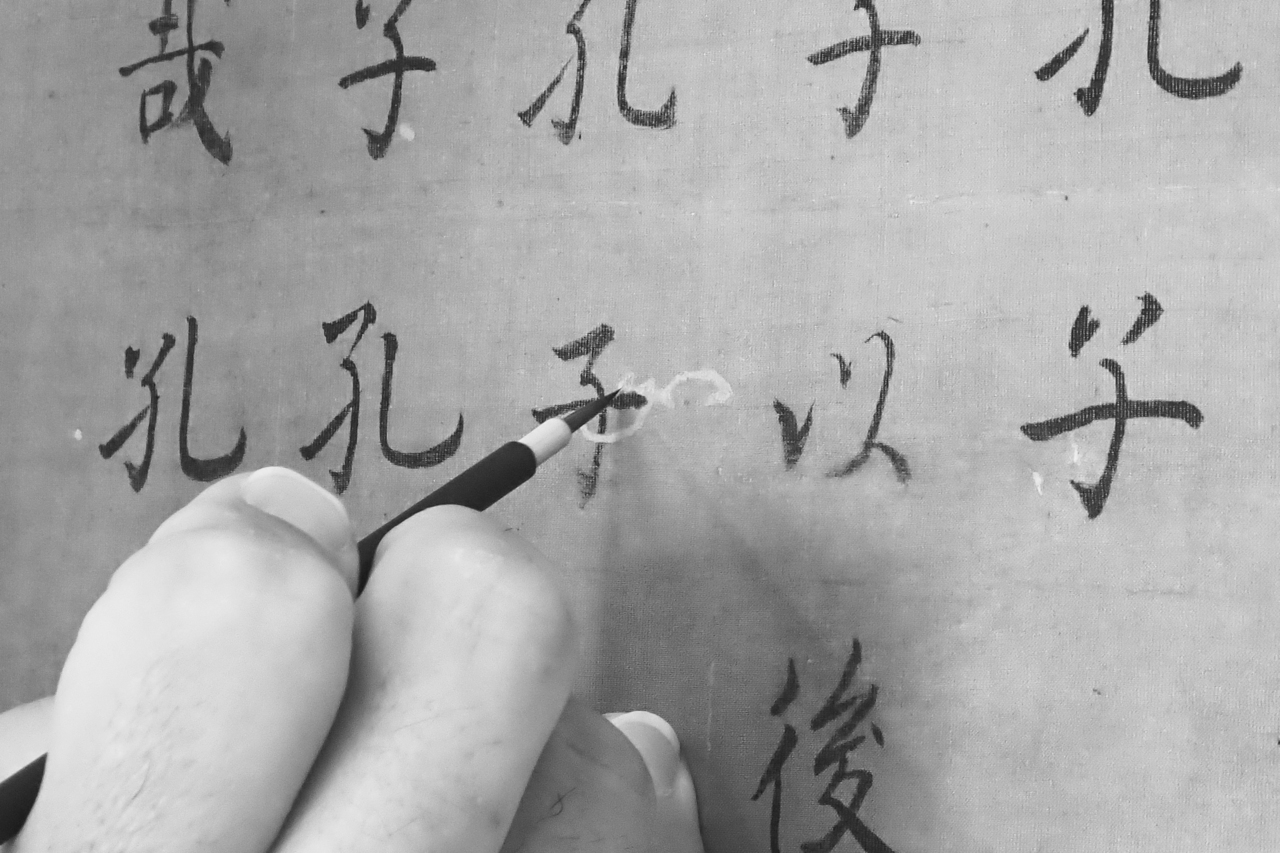 孔子
子以後
孔子
子孔
哉孔